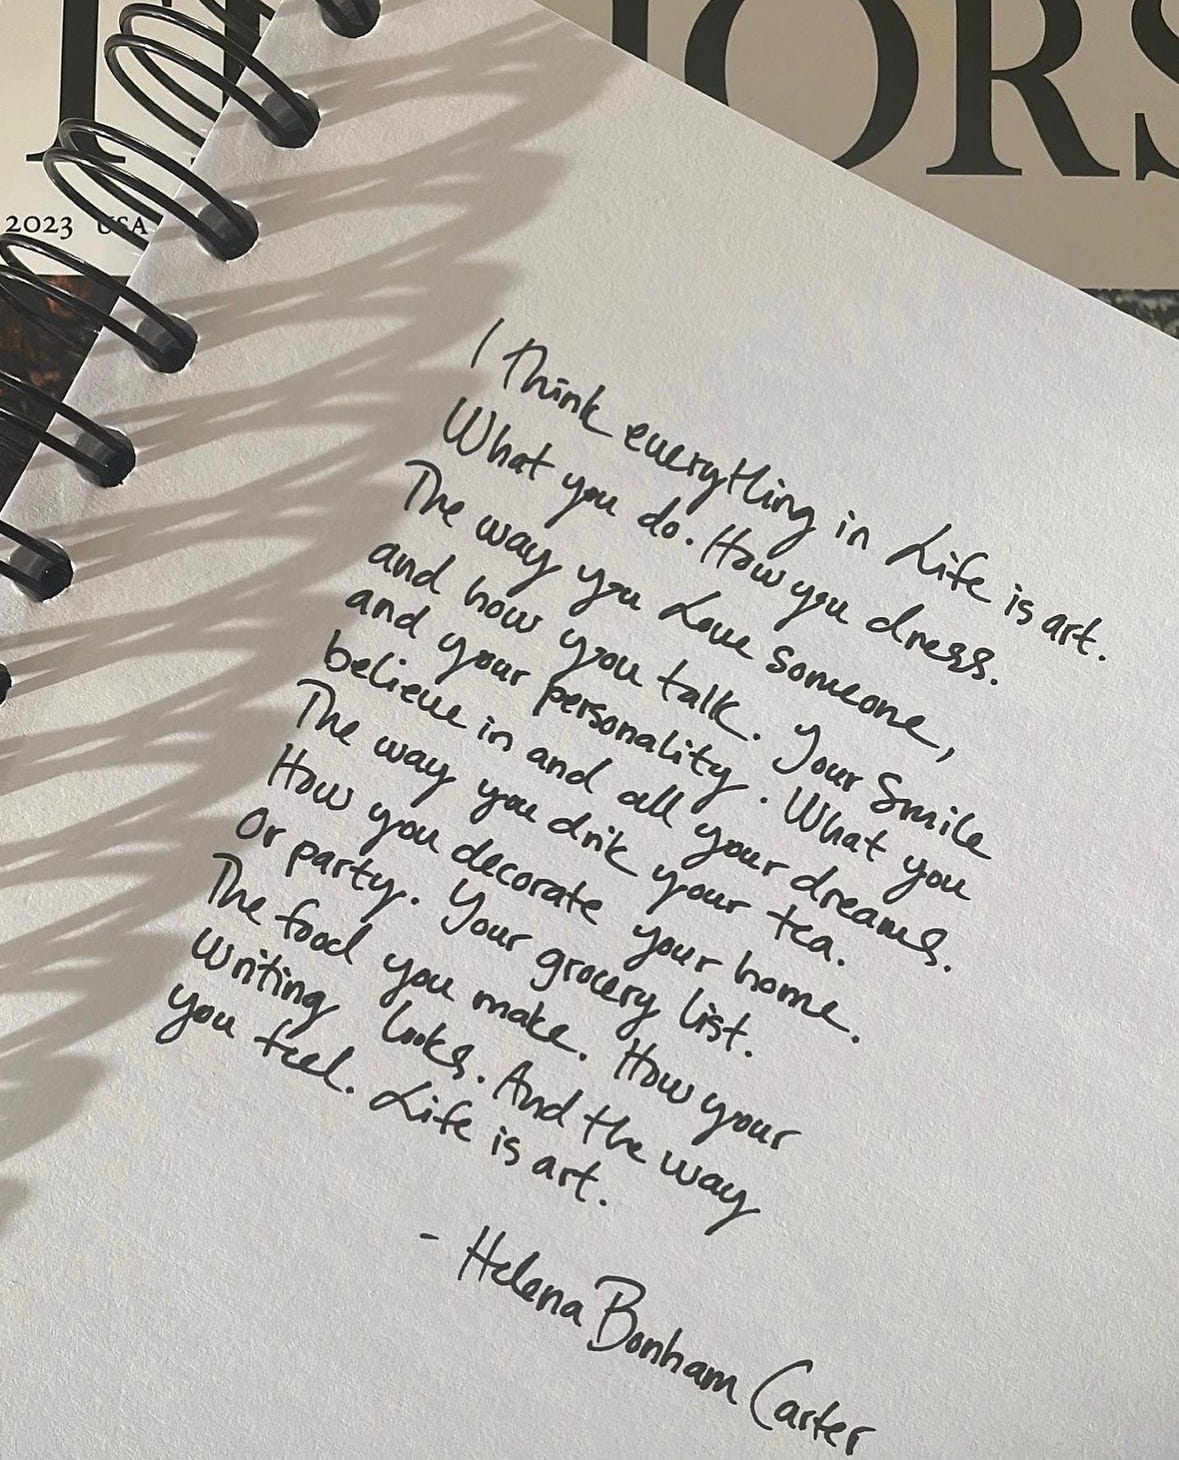 ORS
2023 USA
I think everything in Life is art.
What you do. How you dress.
The way you Love someone,
and how you talk. Your Smile
and your personality. What you
believe in and all your dreams.
The way you drik your tea.
How you decorate your home.
Or party. Your grocery list.
The food you make. How your
writing looks. And the way
you feel. Life is art.
- Helena Bonham Carter